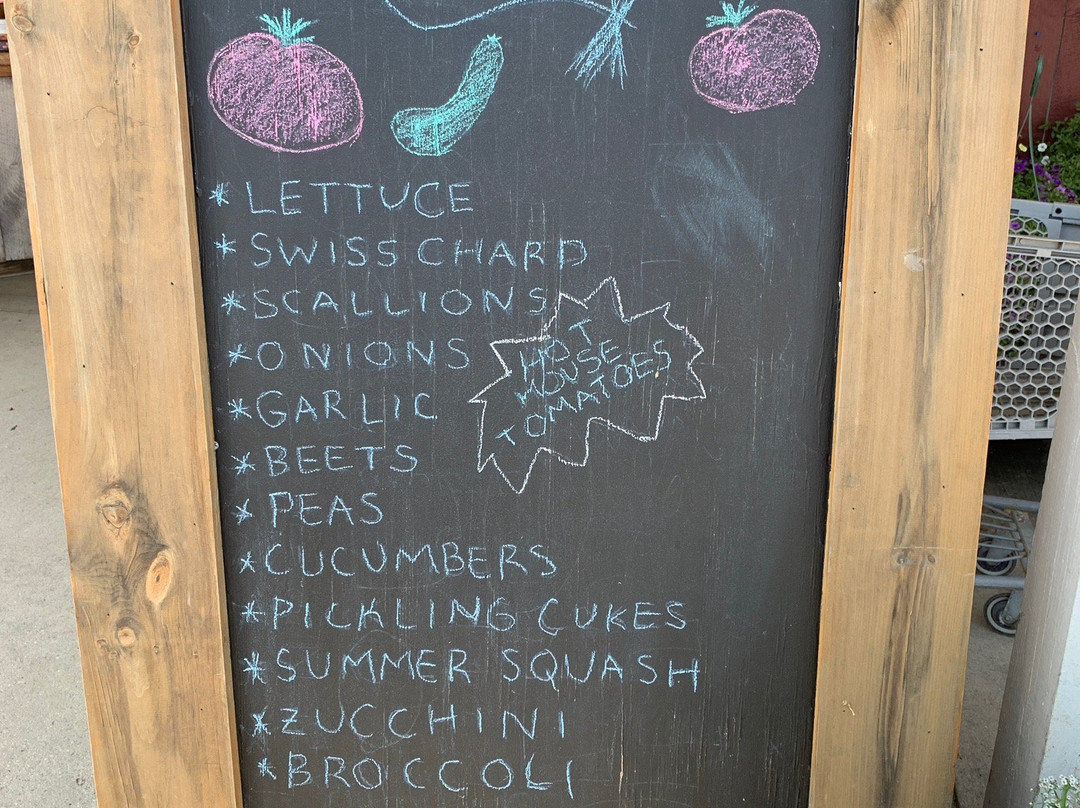 * LETTUCE
* SWISS CHARD
* SCALLIONS
* ONIONS
* GARLIC
* BEETS
* PEAS
* CUCUMBERS
* PICKLING CUKES
* SUMMER SQUASH
* ZUCCHINI
* BROCCOLI
HOT
HOUSE
TOMATOES